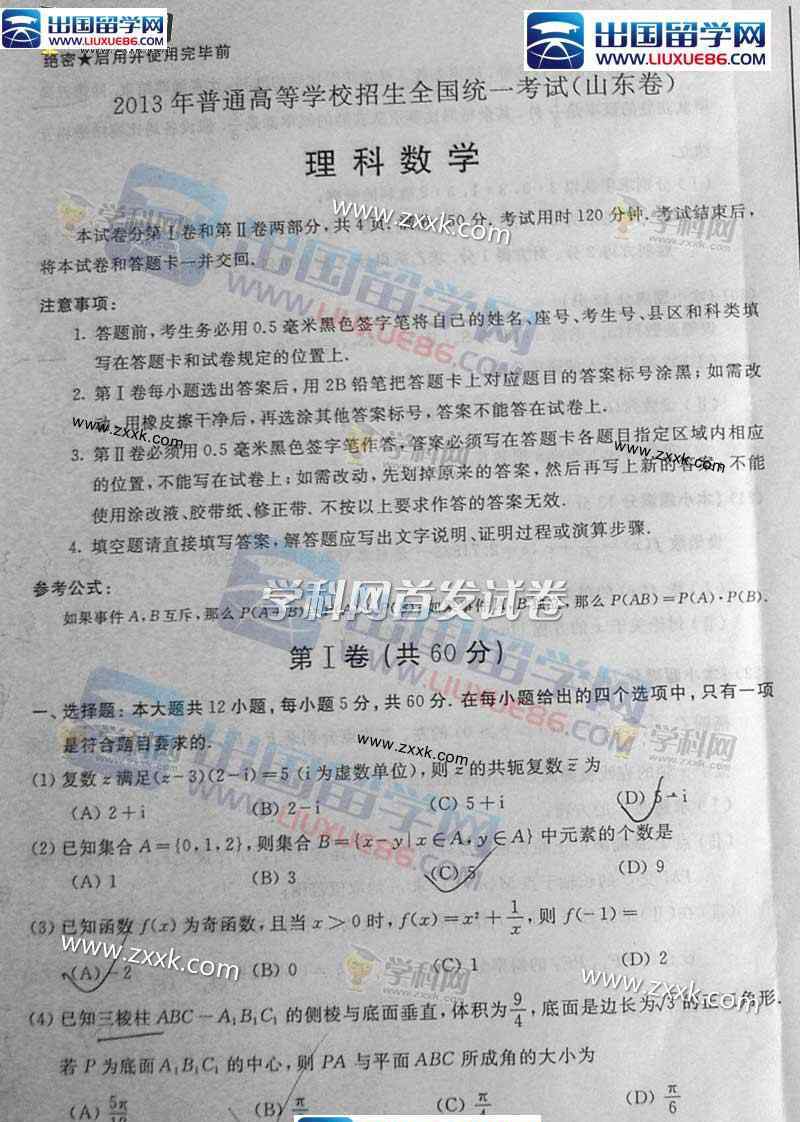 出国留学网
WWW.LIUXUE86.COM
出国留学网
WWW.LIUXUE86.COM
绝密★启用并使用完毕前
2013 年普通高等学校招生全国统一考试(山东卷)
理科数学
本试卷分第Ⅰ卷和第Ⅱ卷两部分,共 4 页.满分150 分. 考试用时 120 分钟. 考试结束后,
将本试卷和答题卡一并交回.
注意事项:
1. 答题前,考生务必用 0.5 毫米黑色签字笔将自己的姓名、座号、考生号、县区和科类填
写在答题卡和试卷规定的位置上.
2. 第Ⅰ卷每小题选出答案后,用 2B 铅笔把答题卡上对应题目的答案标号涂黑;如需改
动,用橡皮擦干净后,再选涂其他答案标号,答案不能答在试卷上.
3. 第Ⅱ卷必须用 0.5 毫米黑色签字笔作答,答案必须写在答题卡各题目指定区域内相应
的位置,不能写在试卷上;如需改动,先划掉原来的答案,然后再写上新的答案,不能
使用涂改液、胶带纸、修正带. 不按以上要求作答的答案无效.
4. 填空题请直接填写答案,解答题应写出文字说明、证明过程或演算步骤.
参考公式:
如果事件 A,B 互斥,那么 P(A+B) 那么 P(AB)=P(A)·P(B).
学科网首发试卷
第Ⅰ卷(共 60 分)
一、选择题:本大题共 12 小题,每小题 5 分,共 60 分. 在每小题给出的四个选项中,只有一项
是符合题目要求的.
(1) 复数 z 满足(z-3)(2-i)=5 (i 为虚数单位),则 z 的共轭复数 z̄ 为
(A) 2+i (B) 2-i (C) 5+i (D) 5-i
(2) 已知集合 A={0,1,2},则集合 B={x-y|x∈A,y∈A} 中元素的个数是
(A) 1 (B) 3 (C) 5 (D) 9
(3) 已知函数 f(x) 为奇函数,且当 x>0 时,f(x)=x²+1/x,则 f(-1)=
(A) -2 (B) 0 (C) 1 (D) 2
(4) 已知三棱柱 ABC-A₁B₁C₁ 的侧棱与底面垂直,体积为 9/4,底面是边长为√3 的正三角形.
若 P 为底面 A₁B₁C₁ 的中心,则 PA 与平面 ABC 所成角的大小为
(A) 5π/12 (B) π (C) π/4 (D) π/6
www.zxxk.com
学科网